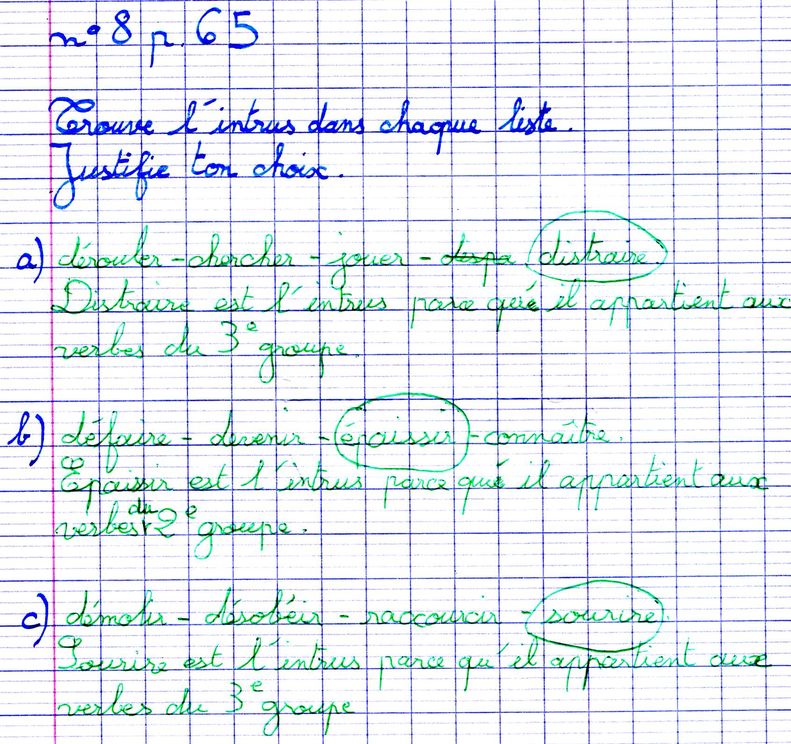 n° 8 p. 65
Trouve l'intrus dans chaque liste.
Justifie ton choix.
a) dérouler - chercher - jouer - distraire
Distraire est l'intrus parce qu'il appartient aux
verbes du 3e groupe.
b) défaire - devenir - épaissir - connaître.
Épaissir est l'intrus parce qu'il appartient aux
verbes du 2e groupe.
c) démolir - désobéir - raccourcir - sourire.
Sourire est l'intrus parce qu'il appartient aux
verbes du 3e groupe